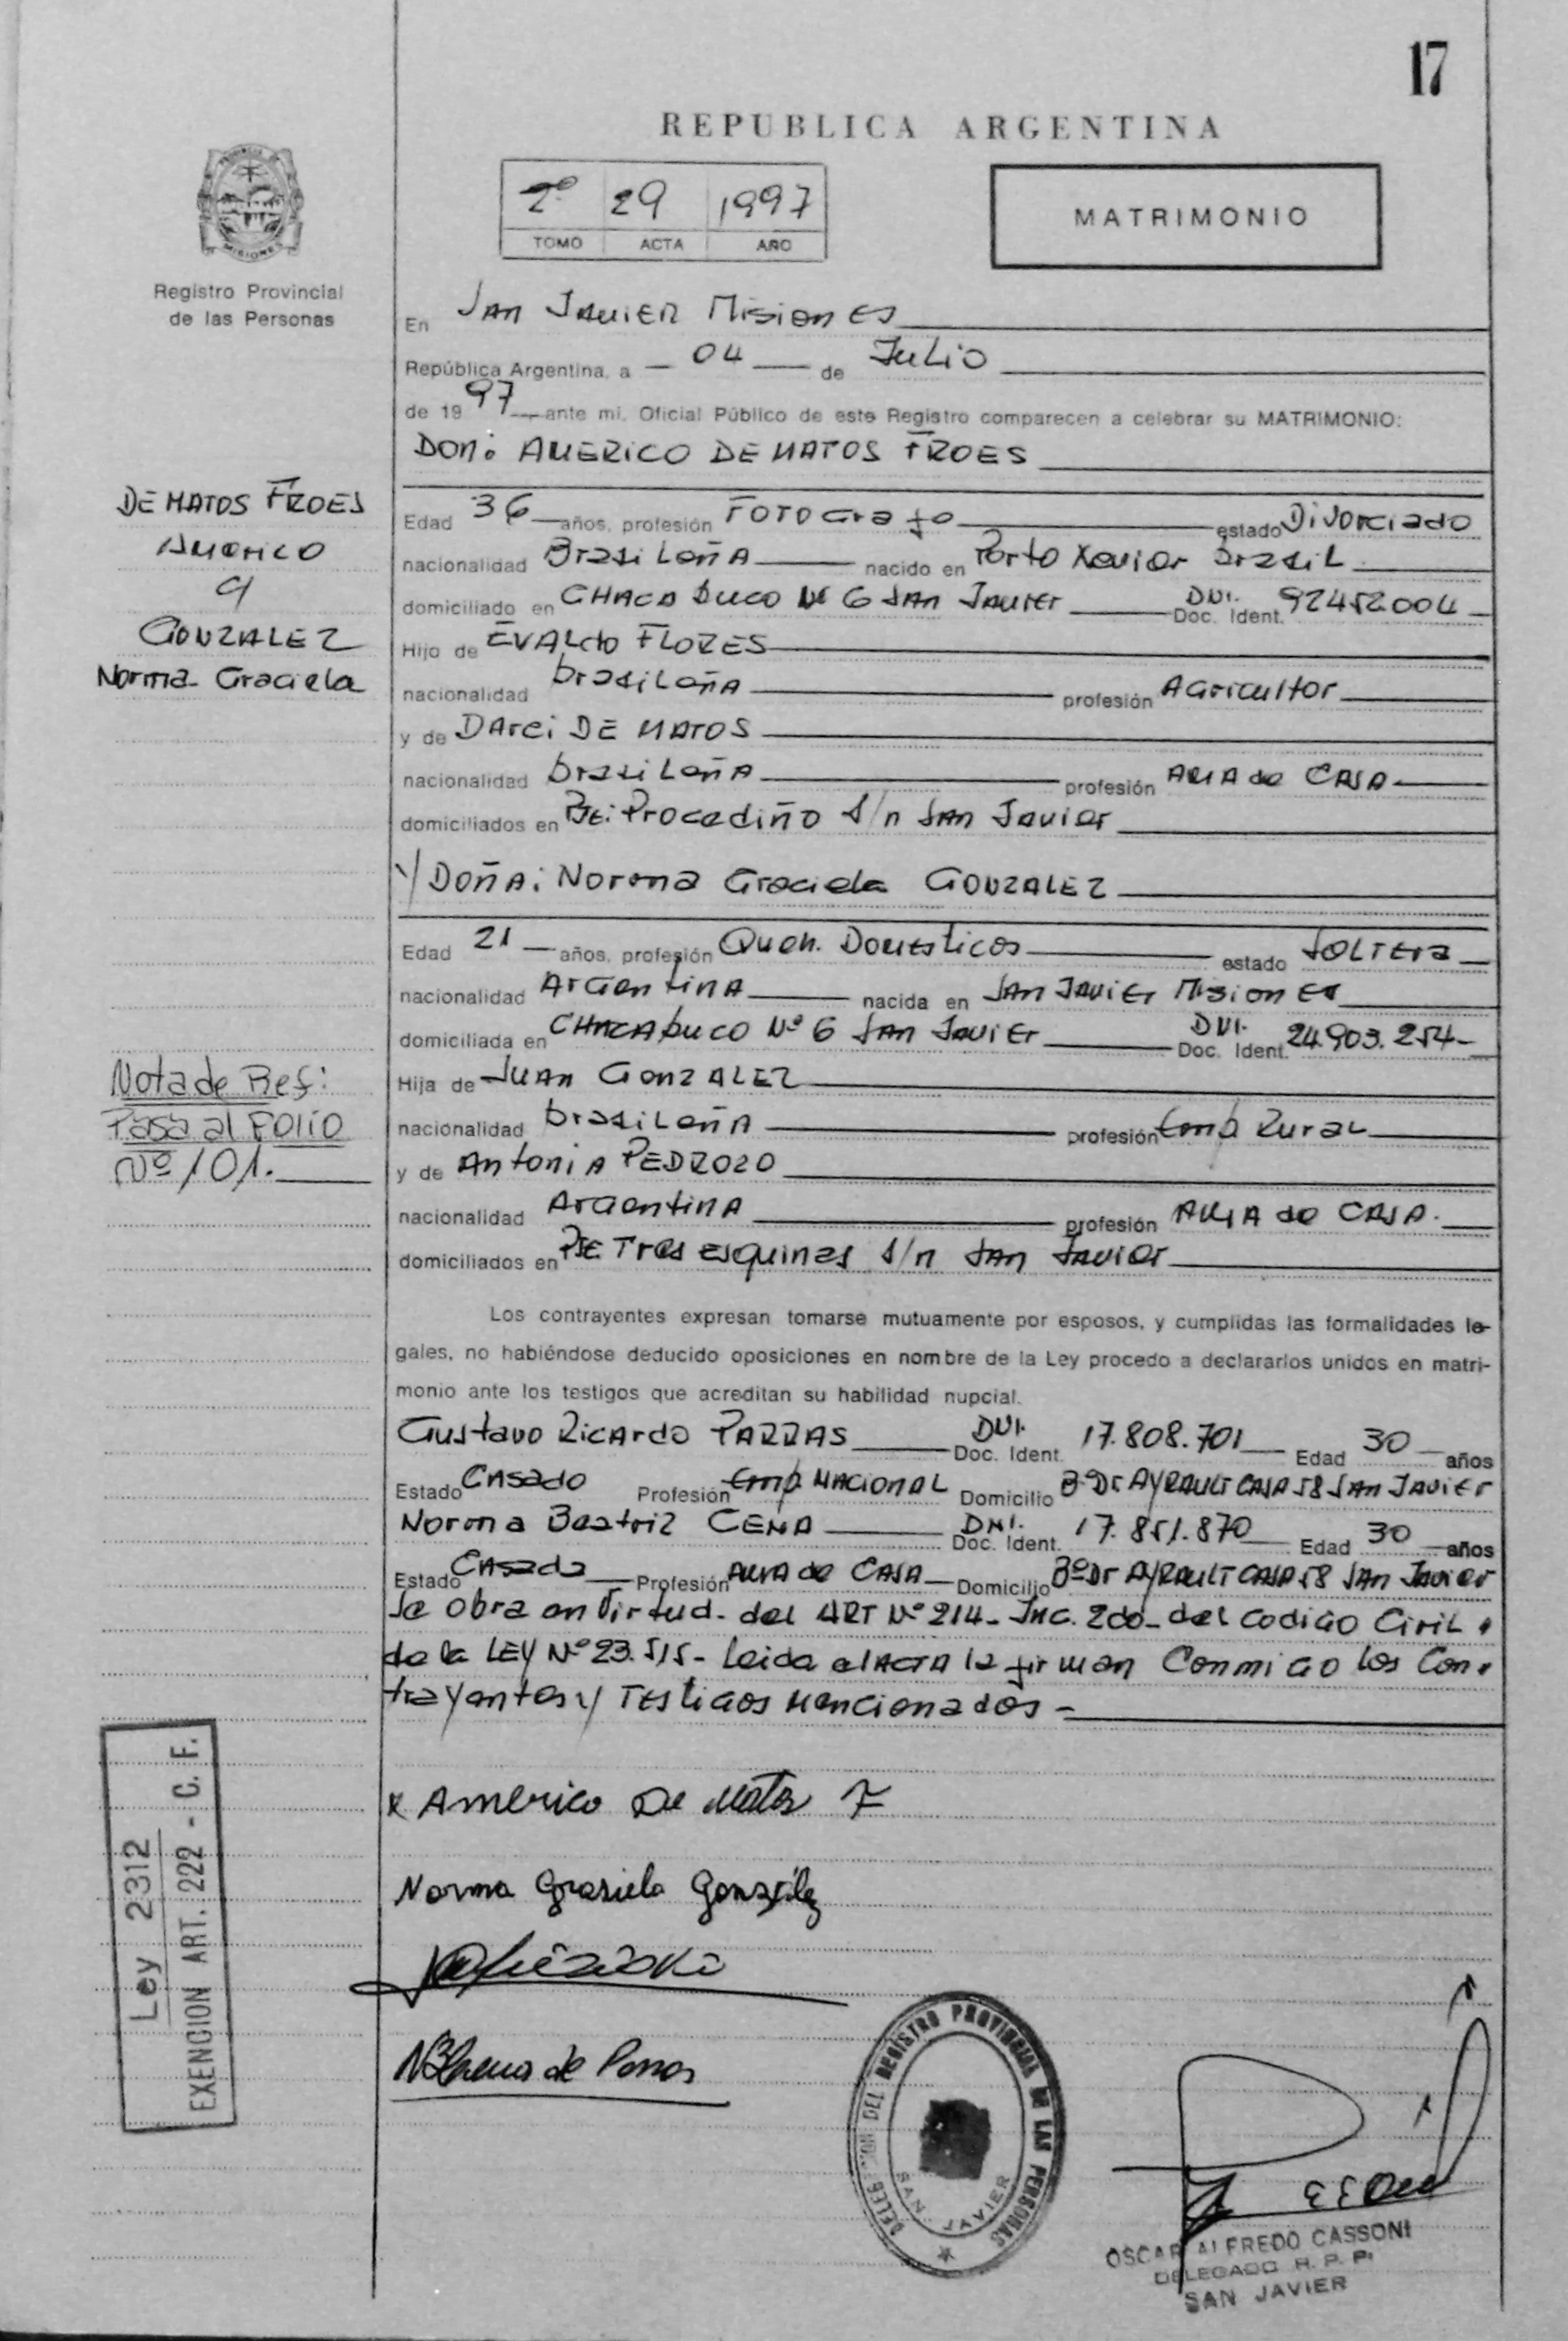 17
REPUBLICA ARGENTINA
2º 29 1997
TOMO ACTA AÑO
MATRIMONIO
PROVINCIA DE
MISIONES
Registro Provincial
de las Personas
En San Javier Misiones
República Argentina, a — 04 — de Julio
de 1997 ante mi, Oficial Público de este Registro comparecen a celebrar su MATRIMONIO:
Don: AMERICO DE MATOS FROES
DE MATOS FROES
Americo
y
GONZALEZ
Norma Graciela
Edad 36 años, profesión Fotografo estado Divorciado
nacionalidad Brasileña nacido en Porto Xavier Brasil
domiciliado en CHACABUCO Nº 6 San Javier DNI. Doc. Ident. 92452004
Hijo de EVALDO FLORES
nacionalidad brasileña profesión Agricultor
y de Darci DE MATOS
nacionalidad brasileña profesión AMA de CASA
domiciliados en Pje: Procediño s/n San Javier
y Doña: Norma Graciela GONZALEZ
Edad 21 años, profesión Queh. Domesticos estado Soltera
nacionalidad Argentina nacida en San Javier Misiones
domiciliada en CHACAbuco Nº 6 San Javier DNI. Doc. Ident. 24.903.254-
Hija de Juan GONZALEZ
nacionalidad brasileña profesión Emp Rural
y de Antonia PEDROZO
nacionalidad Argentina profesión AMA de CASA.
domiciliados en Pje Tres esquinas s/n San Javier
Nota de Ref:
Pasa al FOLIO
Nº 101.
Los contrayentes expresan tomarse mutuamente por esposos, y cumplidas las formalidades le-
gales, no habiéndose deducido oposiciones en nombre de la Ley procedo a declararlos unidos en matri-
monio ante los testigos que acreditan su habilidad nupcial.
Gustavo Ricardo PARRAS DNI. Doc. Ident. 17.808.701 Edad 30 años
Estado Casado Profesión Emp Nacional Domicilio Bº Dr AYRAULT CASA 58 San Javier
Norma Beatriz CENA DNI. Doc. Ident. 17.851.870 Edad 30 años
Estado Casada Profesión AMA de CASA Domicilio Bº Dr AYRAULT CASA 58 San Javier
Se obra en virtud. del ART Nº 214- Inc. 2do- del codigo Civil
de la LEY Nº 23.515- Leida el Acta la firman Conmigo los Con
trayentes y Testigos Mencionados -
x Americo De Matos F
Norma Grasiela González
Ley 2312
EXENCION ART. 222 - C. F.
DELEGACION DEL REGISTRO PROVINCIAL DE LAS PERSONAS
SAN JAVIER
OSCAR ALFREDO CASSONI
DELEGADO R. P. P.
SAN JAVIER